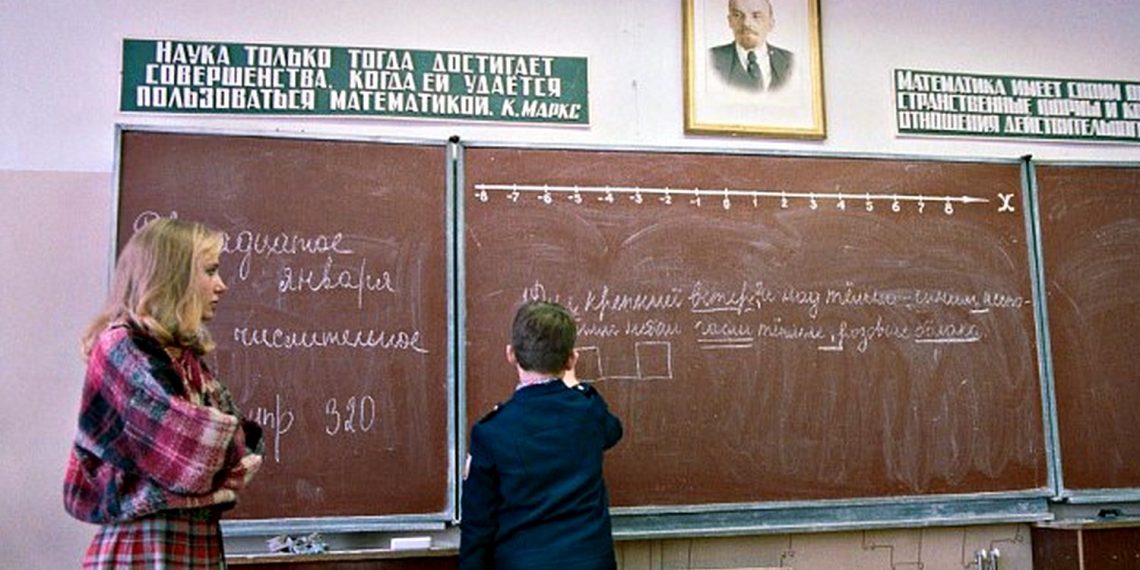 НАУКА ТОЛЬКО ТОГДА ДОСТИГАЕТ
СОВЕРШЕНСТВА, КОГДА ЕЙ УДАЁТСЯ
ПОЛЬЗОВАТЬСЯ МАТЕМАТИКОЙ. К. МАРКС
МАТЕМАТИКА ИМЕЕТ СВОИМ
СТРАНСТВЕННЫЕ ФОРМЫ И
ОТНОШЕНИЯ ДЕЙСТВИТЕЛЬНО
января
числительное
упр 320
-8 -7 -6 -5 -4 -3 -2 -1 0 1 2 3 4 5 6 7 8 X
крепкий ветер, над тёмно-синим
небом гасли тёплые, розовые облака.